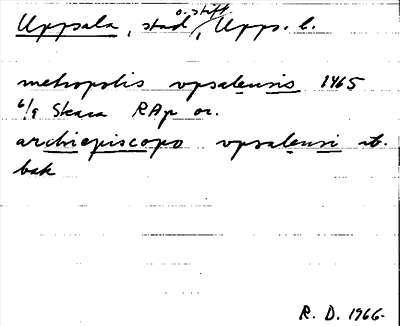 Uppsala, stad o. stift, Upps. l.
metropolis vpsalensis 1465
6/9 Skara RAp or.
archiepiscopo vpsalensi ib.
bak
R. D. 1966.